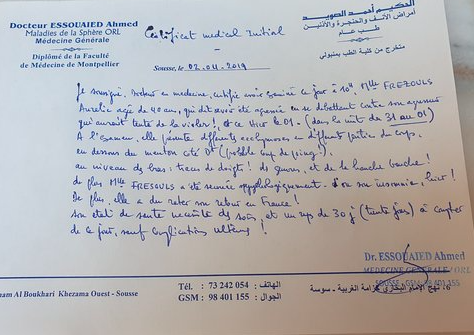 Docteur ESSOUAIED Ahmed
Maladies de la Sphère ORL
Médecine Générale
Diplômé de la Faculté
de Médecine de Montpellier
Certificat medical Initial
الحكيم أحمد الصويد
أمراض الأنف والحنجرة والأذنين
طب عام
متخرج من كلية الطب بمنبولي
Sousse, le 02.04.2019
Je soussigné, Docteur en medecine, certifie avoir examiné ce jour à 10H, Mlle FREZOULS
Aurelie agée de 40 ans, qui dit avoir été agressée en se débattant contre son agresseur
qui aurait tenté de la violer!, et ce Hier le 01 - (dans la nuit du 31 au 01)
A l'examen, elle présente differents ecchymoses en differents parties du corps.
en dessous du menton coté Dt (probable coup de poing!).
au niveau des bras: traces de doigts! de genoux, et de la hanche Gauche!
De plus Mlle FRESOULS a été secouée psychologiquement. d'où son insomnie, hier!
De plus, elle a du rater son retour en France!
Son état de santé necessite des soins, et un repos de 30 j (trente jours) à compter
de ce jour, sauf complications ulterieures!
Dr. ESSOUAIED Ahmed
MEDECINE GENERALE / ORL
98 401 155
am Al Boukhari Khezama Ouest - Sousse
Tél. : 73 242 054 : الهاتف
GSM : 98 401 155 : الجوال
6، نهج الإمام البخاري خزامة الغربية - سوسة